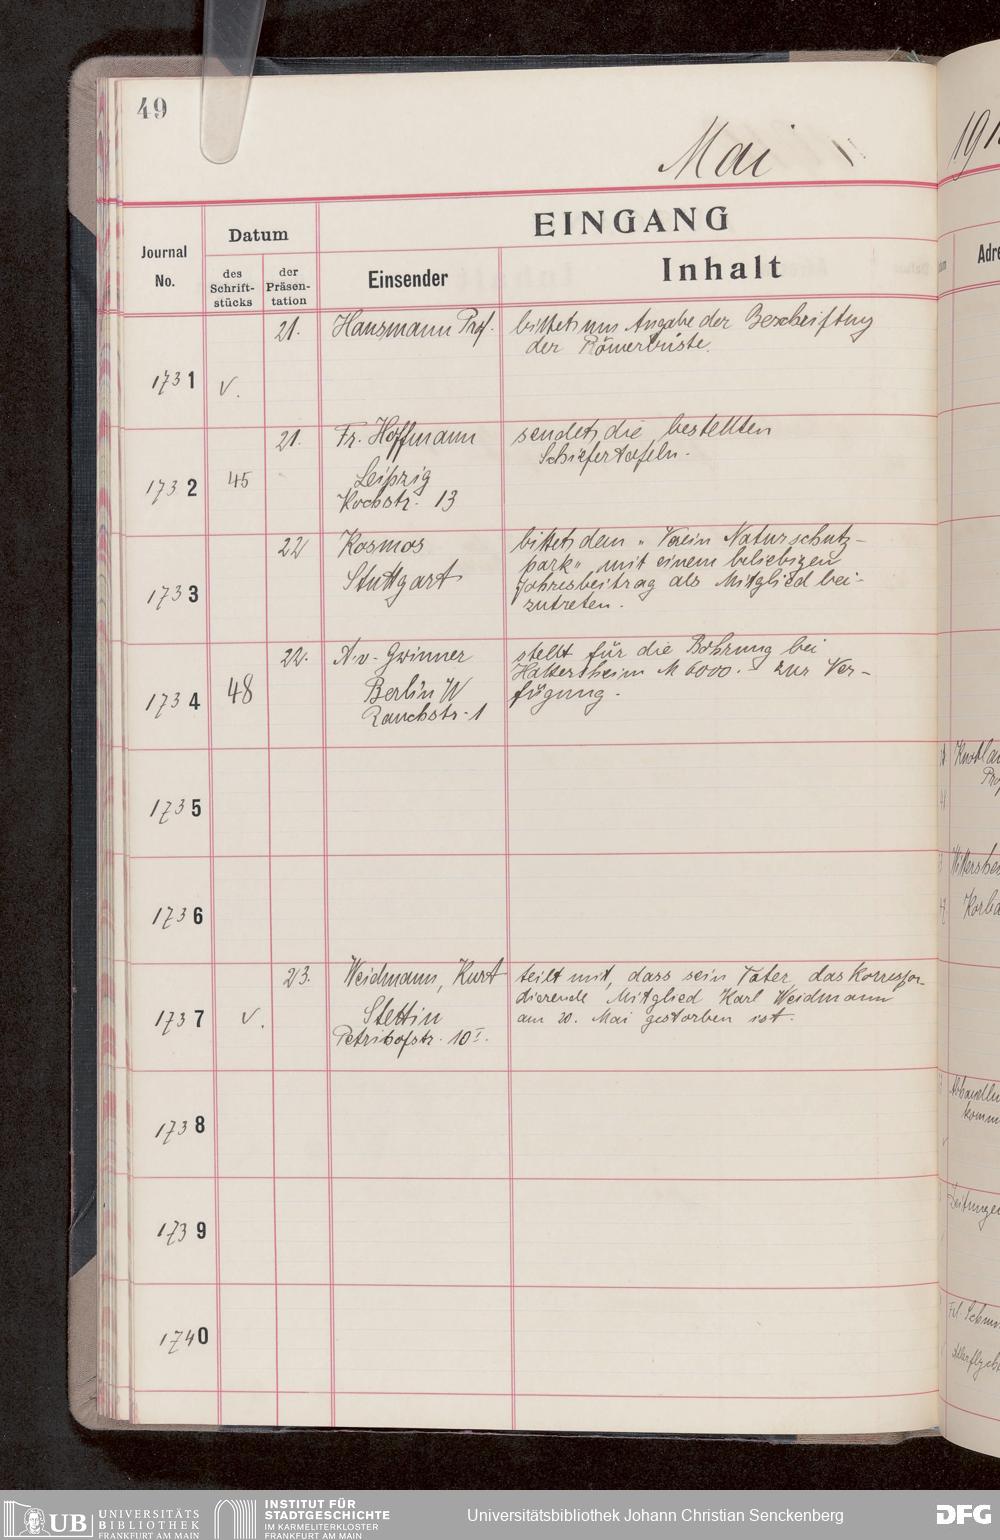 49
Mai
EINGANG
Journal
No.
Datum
des
Schrift-
stücks
der
Präsen-
tation
Einsender
Inhalt
1731
v.
21.
Hausmann Prof.
bittet um Angabe der Beschriftung
der Römerbüste.
1732
45
21.
Fr. Hoffmann
Leipzig
Kochstr. 13
sendet die bestellten
Schiefertafeln.
1733
22
Kosmos
Stuttgart
bittet dem „Verein Naturschutz-
park" mit einem beliebigen
Jahresbeitrag als Mitglied bei-
zutreten.
1734
48
22.
A. v. Gwinner
Berlin W
Rauchstr. 1
stellt für die Bohrung bei
Hattersheim M 6000.- zur Ver-
fügung.
1735
1736
1737
v.
23.
Weidmann, Kurt
Stettin
Petrihofstr. 10 I.
teilt mit, dass sein Vater, das korrespon-
dierende Mitglied Karl Weidmann
am 20. Mai gestorben ist.
1738
1739
1740
191
Adre
UB
UNIVERSITÄTS
BIBLIOTHEK
FRANKFURT AM MAIN
INSTITUT FÜR
STADTGESCHICHTE
IM KARMELITERKLOSTER
FRANKFURT AM MAIN
Universitätsbibliothek Johann Christian Senckenberg
DFG